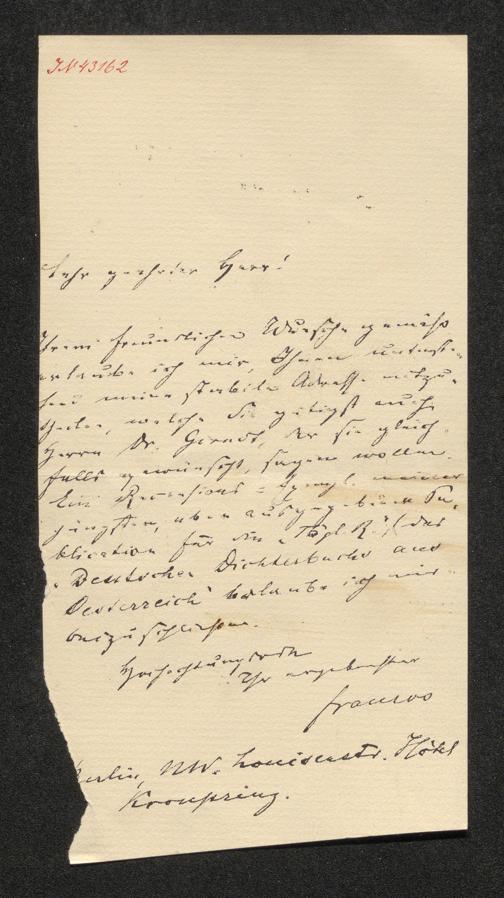 IN 43162
Sehr geehrter Herr!
Ihrem freundlichen Wunsche gemäß
erlaube ich mir, Ihnen untenste-
hend meine stabile Adresse mitzu-
theilen, welche Sie gütigst auch
Herrn Dr. , der sie gleich-
falls gewünscht, sagen wollen.
Ein Recensions-Exempl. meiner
jüngsten, eben ausgegebenen Pu-
blication für die "Tägl. R." (das
"Deutsche Dichterbuch aus
Oesterreich" erlaube ich mir
beizuschließen.
Hochachtungsvoll
Ihr ergebenster
Franzos
Berlin, NW. Louisenstr. Hôtel
Kronprinz.